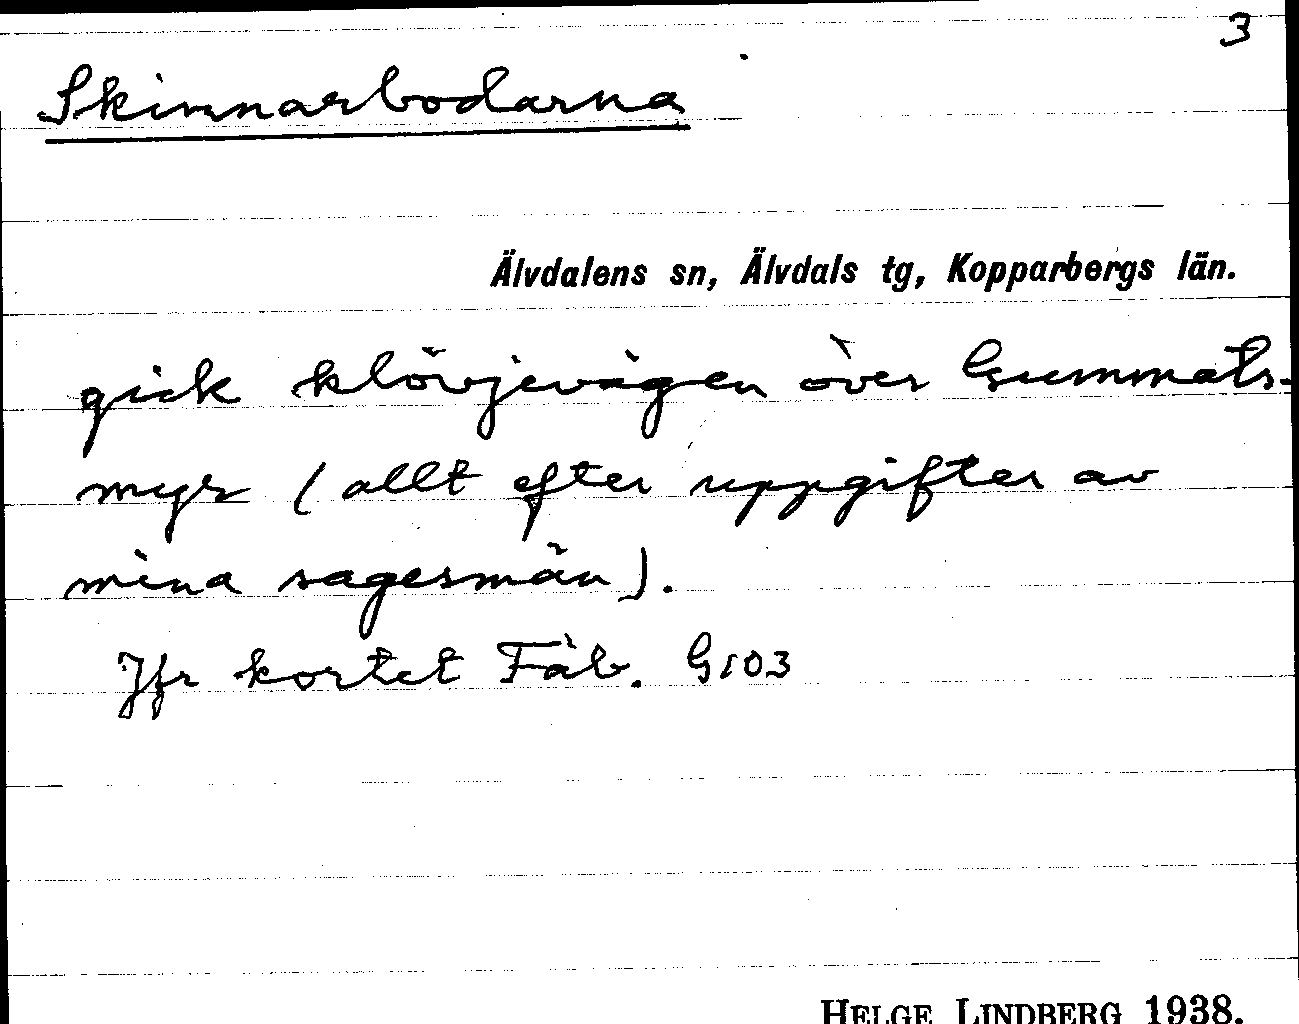 3
Skinnarbodarna
Älvdalens sn, Älvdals tg, Kopparbergs län.
gick klövjevägen över Gummäts-
myr (allt efter uppgifter av
mina sagesmän).
Jfr kortet Fäb. G103
HELGE LINDBERG 1938.